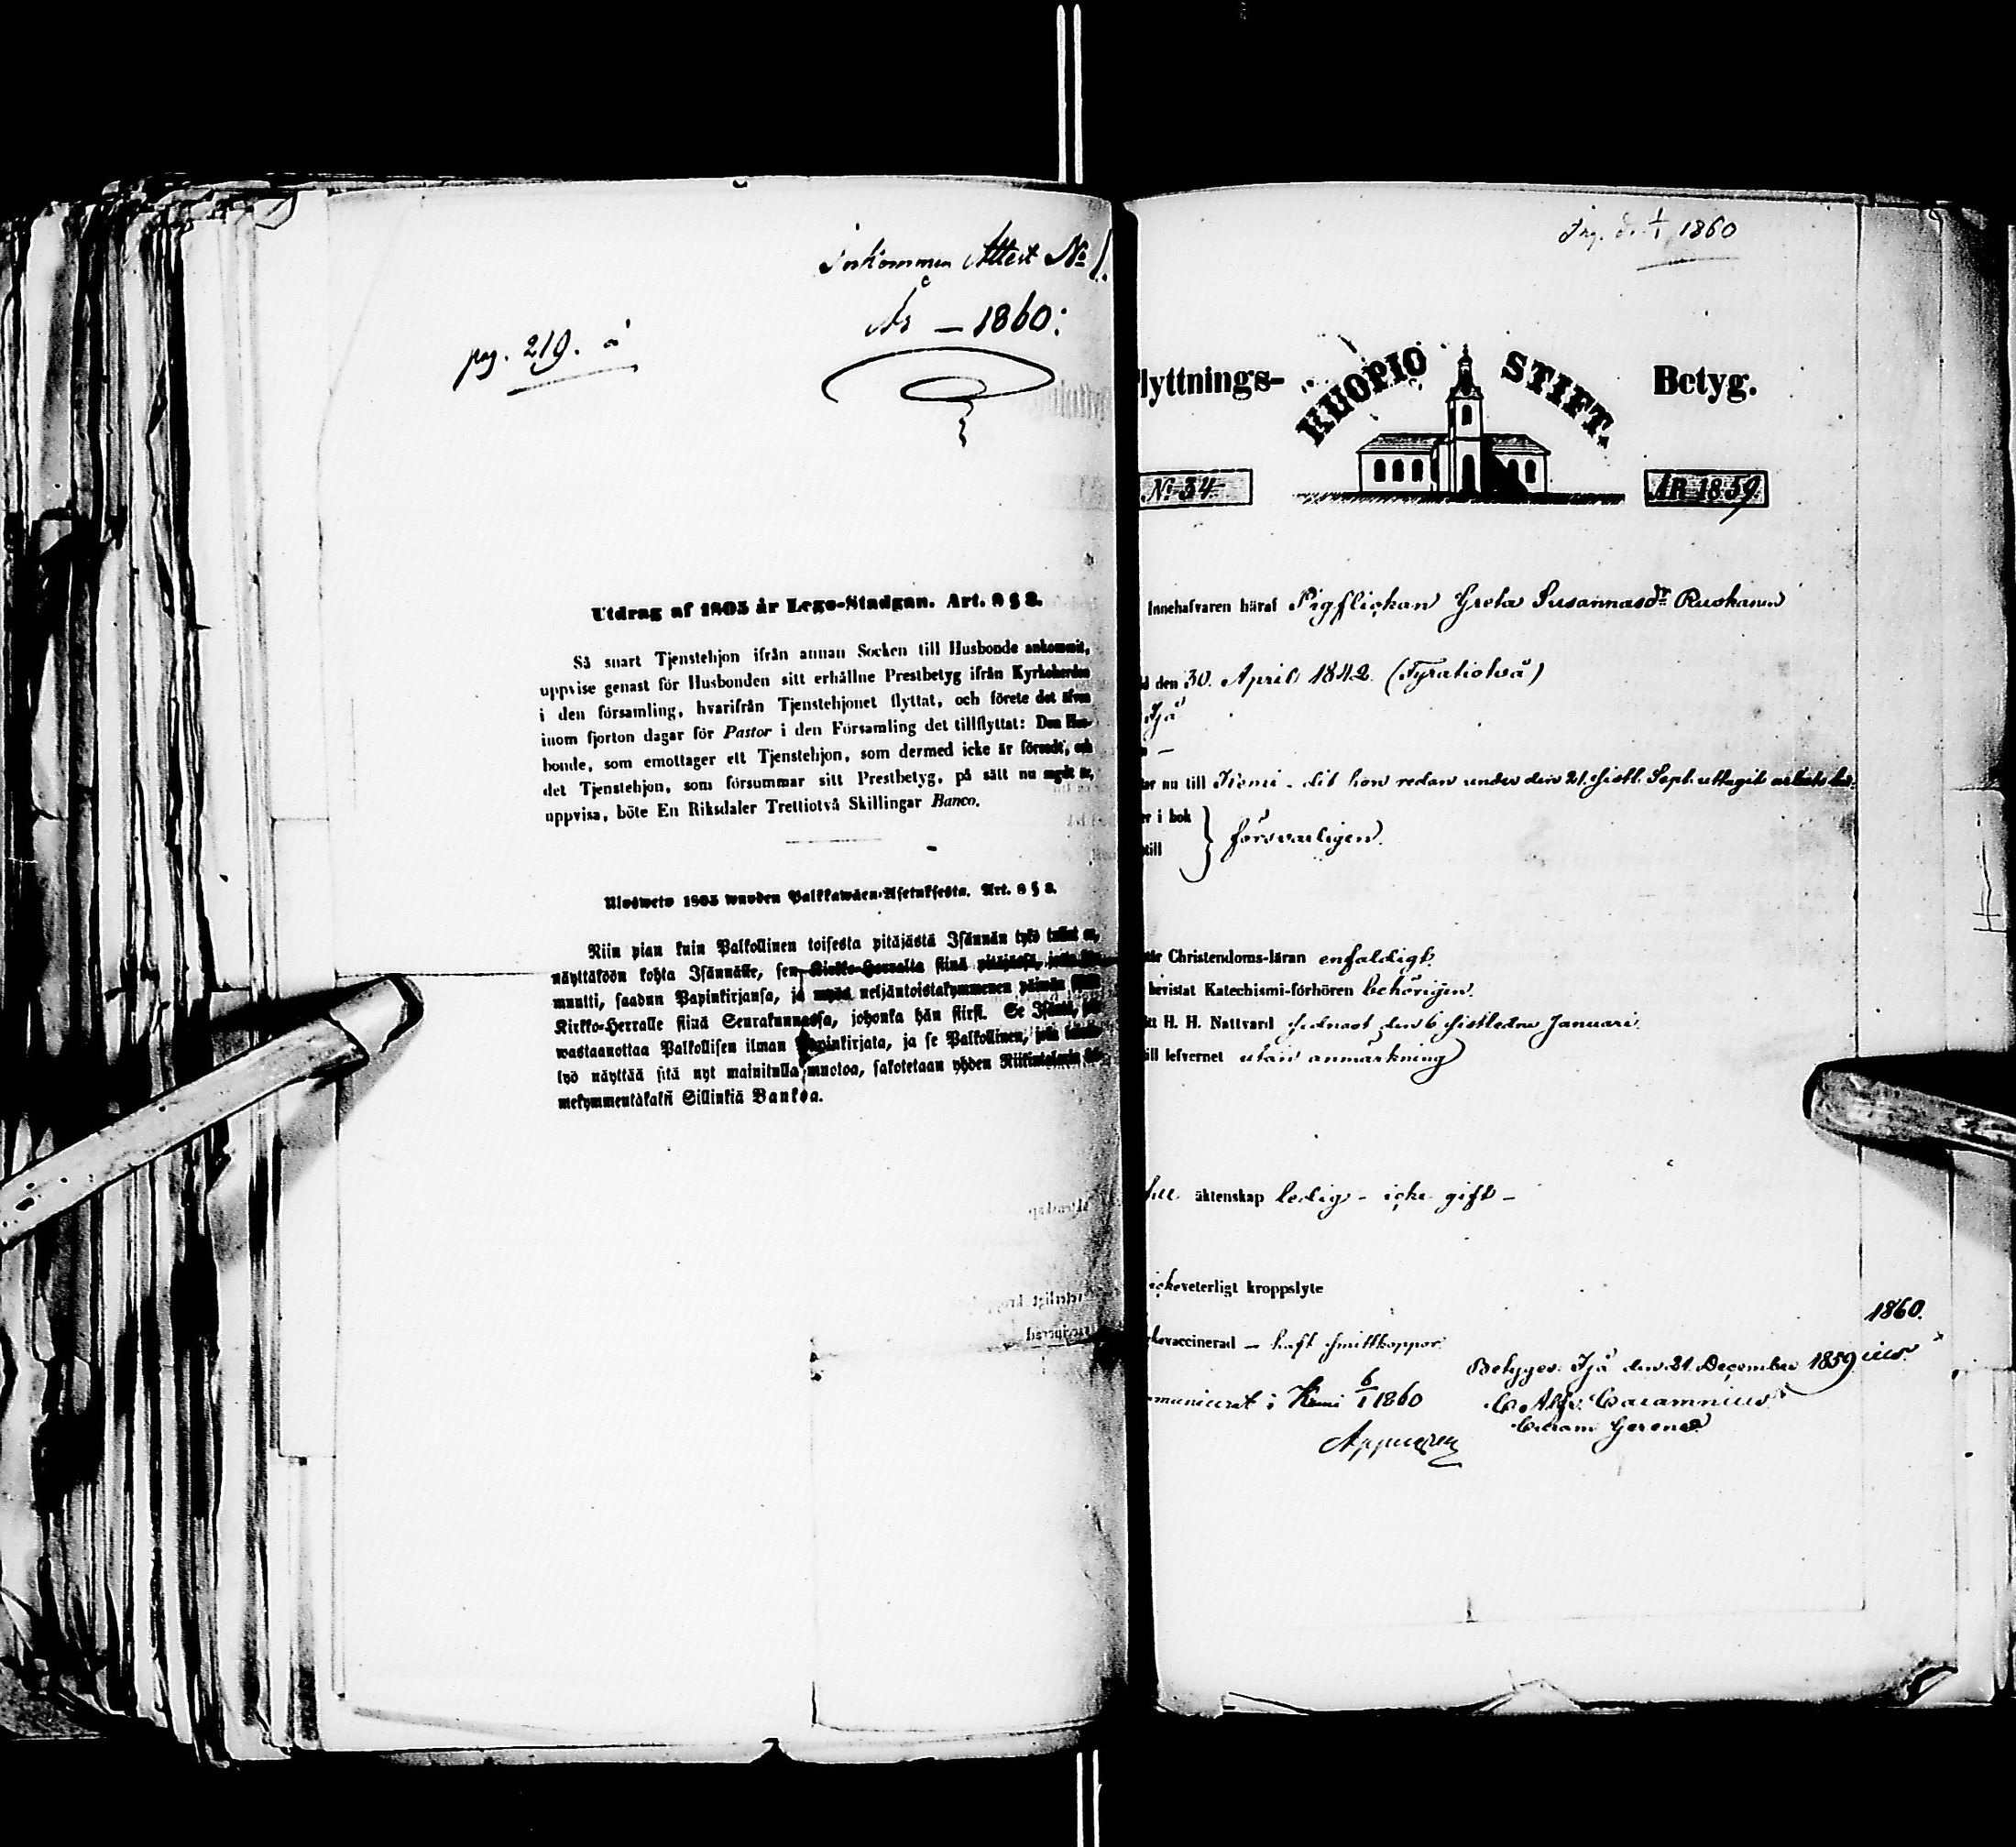 Inkommen Attest No 1.
År – 1860:
pag. 219. å
Utdrag af 1805 år Lego-Stadgan. Art. 8 § 3.
Så snart Tjenstehjon ifrån annan Socken till Husbonde ankommit,
uppvise genast för Husbonden sitt erhållne Prestbetyg ifrån Kyrkoherden
i den församling, hvarifrån Tjenstehjonet flyttat, och förete det äfven
inom fjorton dagar för Pastor i den Församling det tillflyttat: Den Hus-
bonde, som emottager ett Tjenstehjon, som dermed icke är försedt, och
det Tjenstehjon, som försummar sitt Prestbetyg, på sätt nu sagdt är,
uppvisa, böte En Riksdaler Trettiotvå Skillingar Banco.
Ulosweto 1805 wuoden Palkkawäen-Asetuksesta. Art. 8 § 3.
Niin pian kuin Palkollinen toisesta pitäjästä Isännän tykö tullut on,
näyttäköön kohta Isännälle, sen Kirkko-Herralta siinä pitäjässä, josta
muutti, saadun Papinkirjansa, ja myös neljäntoistakymmenen päiwän
Kirkko-Herralle siinä Seurakunnassa, johonka hän siirsi. Se Isäntä, joka
wastaanottaa Palkollisen ilman Papinkirjata, ja se Palkollinen, joka
lyö näyttää sitä nyt mainitulla muotoa, sakotetaan yhden Riikintalerin
mekymmentäkaksi Sillinkiä Bankoa.
Ing. d. 1/1 1860
lyttnings- KUOPIO STIFT. Betyg.
No 34 ÅR 1859
Innehafvaren häraf Pigflickan Greta Susannasdr Ruokanen
d den 30. April 1842 (Fyratiotvå)
Ijå
–
or nu till Kemi – dit hon redan under den 21. sistl. Sept. uttagit
er i bok
till } försvarligen.
Christendoms-läran enfaldigt.
bevistat Katechismi-förhören behörigen.
tt H. H. Nattvard sednast den 6 sistledne Januari.
ill lefvernet utan anmärkning
till äktenskap ledig – icke gift –
icke veterligt kroppslyte
vaccinerad – haft smittkoppor.
1860.
Betyger. Ijå den 21. December 1859
municerat i Kemi 6/1 1860